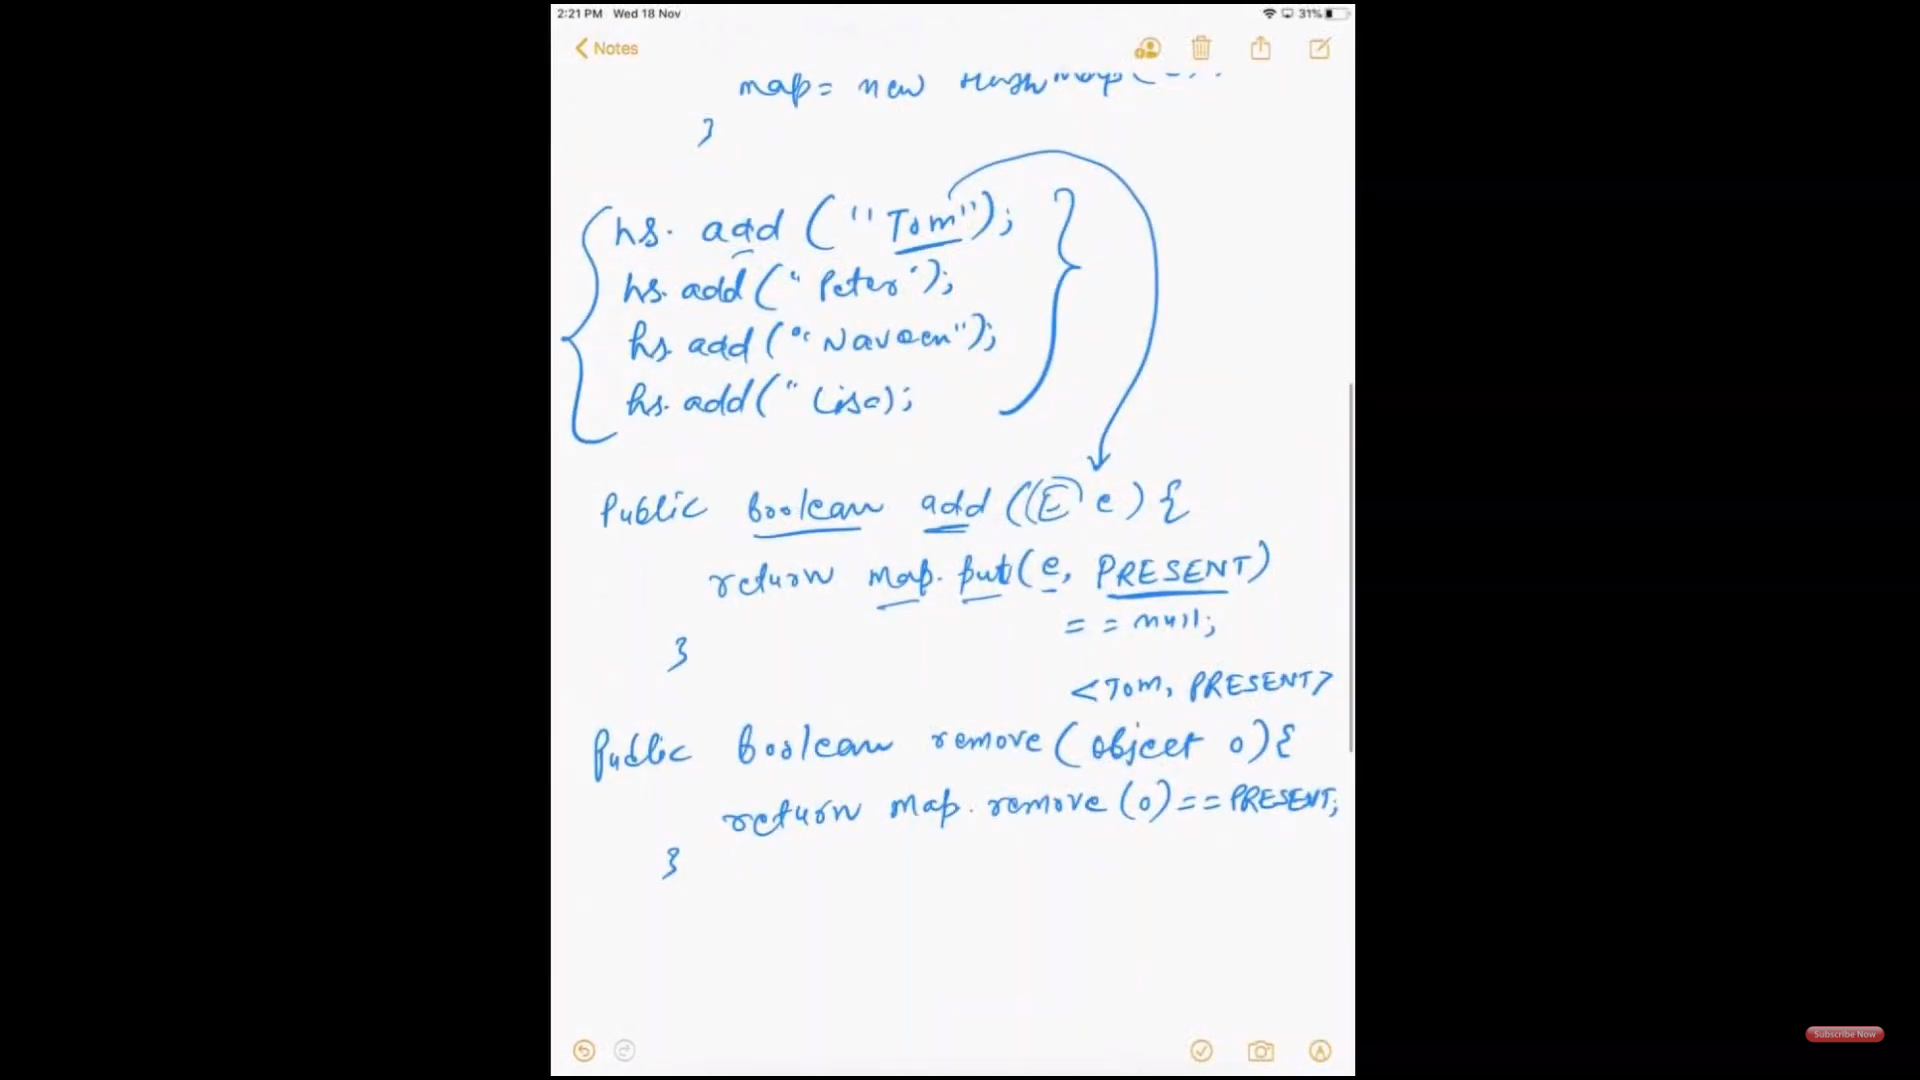 2:21 PM Wed 18 Nov
31%
Notes
map = new HashMap
}
hs. add ("Tom");
hs. add ("Peter");
hs. add ("Naveen");
hs. add (" Lisa);
Public boolean add ((E) e) {
return map. put (e, PRESENT)
= = null;
}
<Tom, PRESENT>
Public boolean remove (object o) {
return map. remove (o) == PRESENT;
}
Subscribe Now